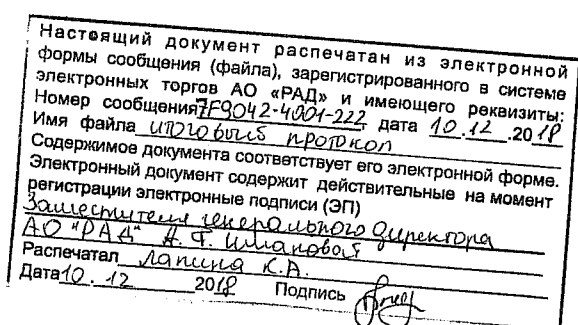 Настоящий документ распечатан из электронной
формы сообщения (файла), зарегистрированного в системе
электронных торгов АО «РАД» и имеющего реквизиты:
Номер сообщения 7F9042-4001-222, дата 10.12.2018
Имя файла итоговый протокол
Содержимое документа соответствует его электронной форме.
Электронный документ содержит действительные на момент
регистрации электронные подписи (ЭП)
Заместителя генерального директора
АО "РАД"
Распечатал Лапина К.А.
Дата 10.12 2018 Подпись